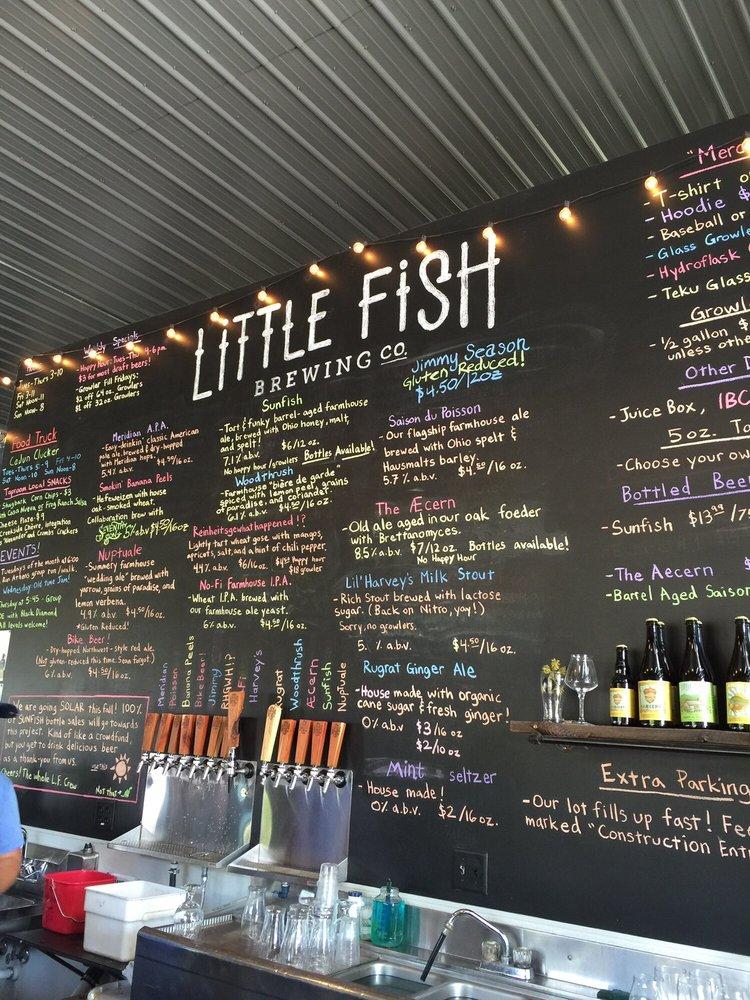 LiTTLE FiSH
BREWING CO.
Tues-Thurs 3-10
Fri 3-11
Sat Noon-11
Sun Noon-8
Weekly Specials
-Happy hour: Tues-Thu 4-6 pm
$3 for most draft beers!
-Growler Fill Fridays:
$2 off 64 oz. Growlers
$1 off 32 oz Growlers
Food Truck
Cajun Clucker
Tues-Thurs 5-9 Fri 4-10
Sat Noon-10 Sun Noon-8
Taproom Local SNACKS
Shagbark Corn Chips - $3
Cheese Plate - $9
EVENTS!
Tuesdays of the month at 6:00
Run Athens group run/walk
Wednesday: Old time Jam!
Thursday at 5:45 - Group
ride with Black Diamond
All levels welcome!
Meridian A.P.A.
-Easy-drinkin' classic American
pale ale, brewed & dry-hopped
with Meridian hops.
5.4% a.b.v. $4.50/16 oz
Smokin' Banana Peels
-Hefeweizen with house
oak-smoked wheat.
Collaboration brew with
Nuptuale
-Summery farmhouse
"wedding ale" brewed with
yarrow, grains of paradise, and
lemon verbena.
4.9% a.b.v. $4.50/16 oz
*Gluten Reduced!
Bike Beer!
-Dry-hopped Northwest-style red ale.
(Not gluten-reduced this time. Sean forgot.)
6% a.b.v. $4.50/16 oz.
We are going SOLAR this fall! 100%
of SUNFISH bottle sales will go towards
this project. Kind of like a crowdfund,
but you get to drink delicious beer
as a thank-you from us.
Cheers! The whole L.F. Crew
Use this
Not that
Sunfish
-Tart & funky barrel-aged farmhouse
ale, brewed with Ohio honey, malt,
and spelt!
7.1% a.b.v. $6/12 oz.
No happy hour/growlers Bottles Available!
Woodthrush
-Farmhouse "bière de garde"
spiced with lemon peel, grains
of paradise, and coriander.
6.1% a.b.v. $4.50/16 oz.
Reinheitsgewhathappened!?
Lightly tart wheat gose with mangos,
apricots, salt, and a hint of chili pepper.
4.4% a.b.v. $6/16 oz.
No-Fi Farmhouse I.P.A.
-Wheat I.P.A. brewed with
our farmhouse ale yeast.
6% a.b.v. $4.50/16 oz.
Meridian
Poisson
Banana Peels
Bike Beer!
Jimmy
RHGWH!?
Fi
Harvey's
Rugrat
Woodthrush
Æcern
Sunfish
Nuptuale
Jimmy Season
Gluten Reduced!
$4.50/12oz
Saison du Poisson
-Our flagship farmhouse ale
brewed with Ohio spelt &
Hausmalts barley.
5.7% a.b.v. $4.50/16 oz.
The Æcern
-Old ale aged in our oak foeder
with Brettanomyces.
8.5% a.b.v. $7/12 oz. Bottles available!
No Happy Hour
Lil' Harvey's Milk Stout
-Rich Stout brewed with lactose
sugar. (Back on Nitro, yay!)
Sorry, no growlers.
5. % a.b.v. $4.50/16 oz.
Rugrat Ginger Ale
-House made with organic
cane sugar & fresh ginger!
0% a.b.v $3/16 oz
$2/10 oz
Mint seltzer
-House made!
0% a.b.v. $2/16 oz.
"Merc
-T-shirt o
-Hoodie $
-Baseball or
-Glass Growle
-Hydroflask
-Teku Glass
Growl
-1/2 gallon $
unless othe
Other D
-Juice Box, IBC
5 oz. Ta
-Choose your own
Bottled Beer
-Sunfish $13.99/75
-The Aecern $
-Barrel Aged Saison
Extra Parking
-Our lot fills up fast! Fe
marked "Construction Ent